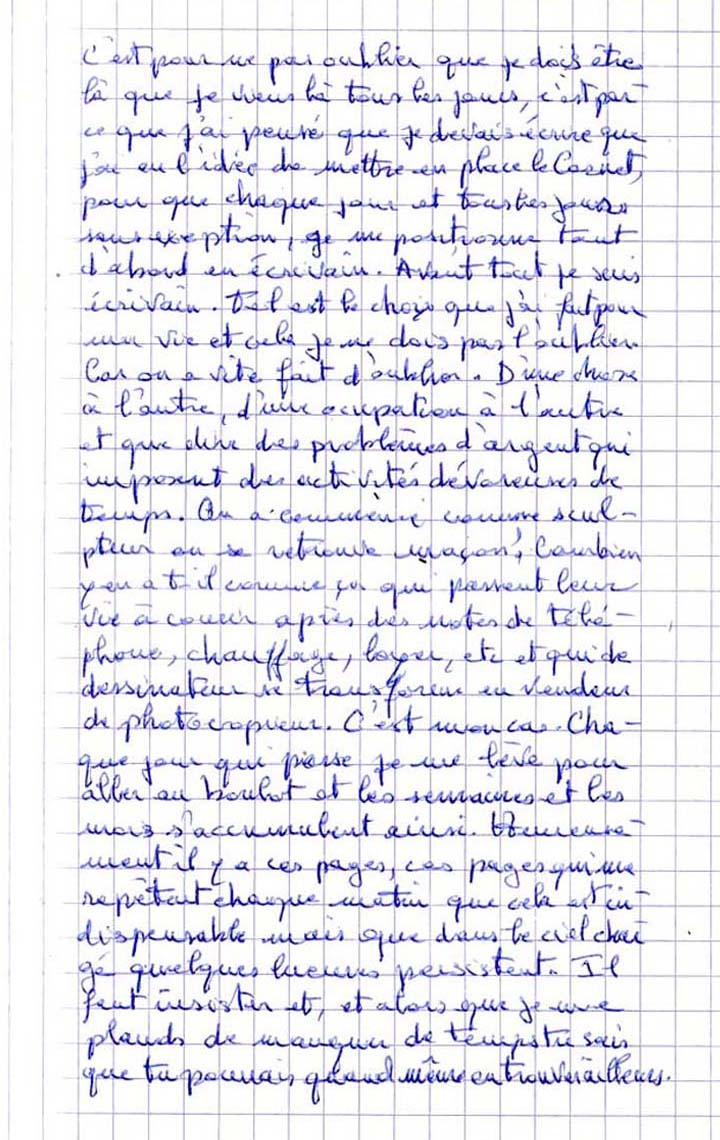 C'est pour ne pas oublier que je dois être
là que je viens là tous les jours, c'est par
ce que j'ai pensé que je devais écrire que
j'ai eu l'idée de mettre en place le Carnet,
pour que chaque jour et tous les jours
sans exception, je me positionne tout
d'abord en écrivain. Avant tout je suis
écrivain. Tel est le choix que j'ai fait pour
ma vie et cela je ne dois pas l'oublier
Car on a vite fait d'oublier. D'une chose
à l'autre, d'une ocupation à l'autre
et que dire des problèmes d'argent qui
imposent des activités dévoreuses de
temps. On a commencé comme scul-
pteur on se retrouve maçon, Combien
y en a t-il comme ça qui passent leur
vie à courir après des notes de télé-
phone, chauffage, loyer, etc et qui de
dessinateur se transforme en vendeur
de photocopieur. C'est mon cas. Cha-
que jour qui passe je me lève pour
aller au boulot et les semaines et les
mois s'accumulent ainsi. Heureuse-
ment il y a ces pages, ces pages qui me
repètent chaque matin que cela est in-
dispensable mais que dans le ciel char
gé quelques lueurs persistent. Il
faut insister et, et alors que je me
plains de manquer de temps tu sais
que tu pourrais quand même en trouver ailleurs.